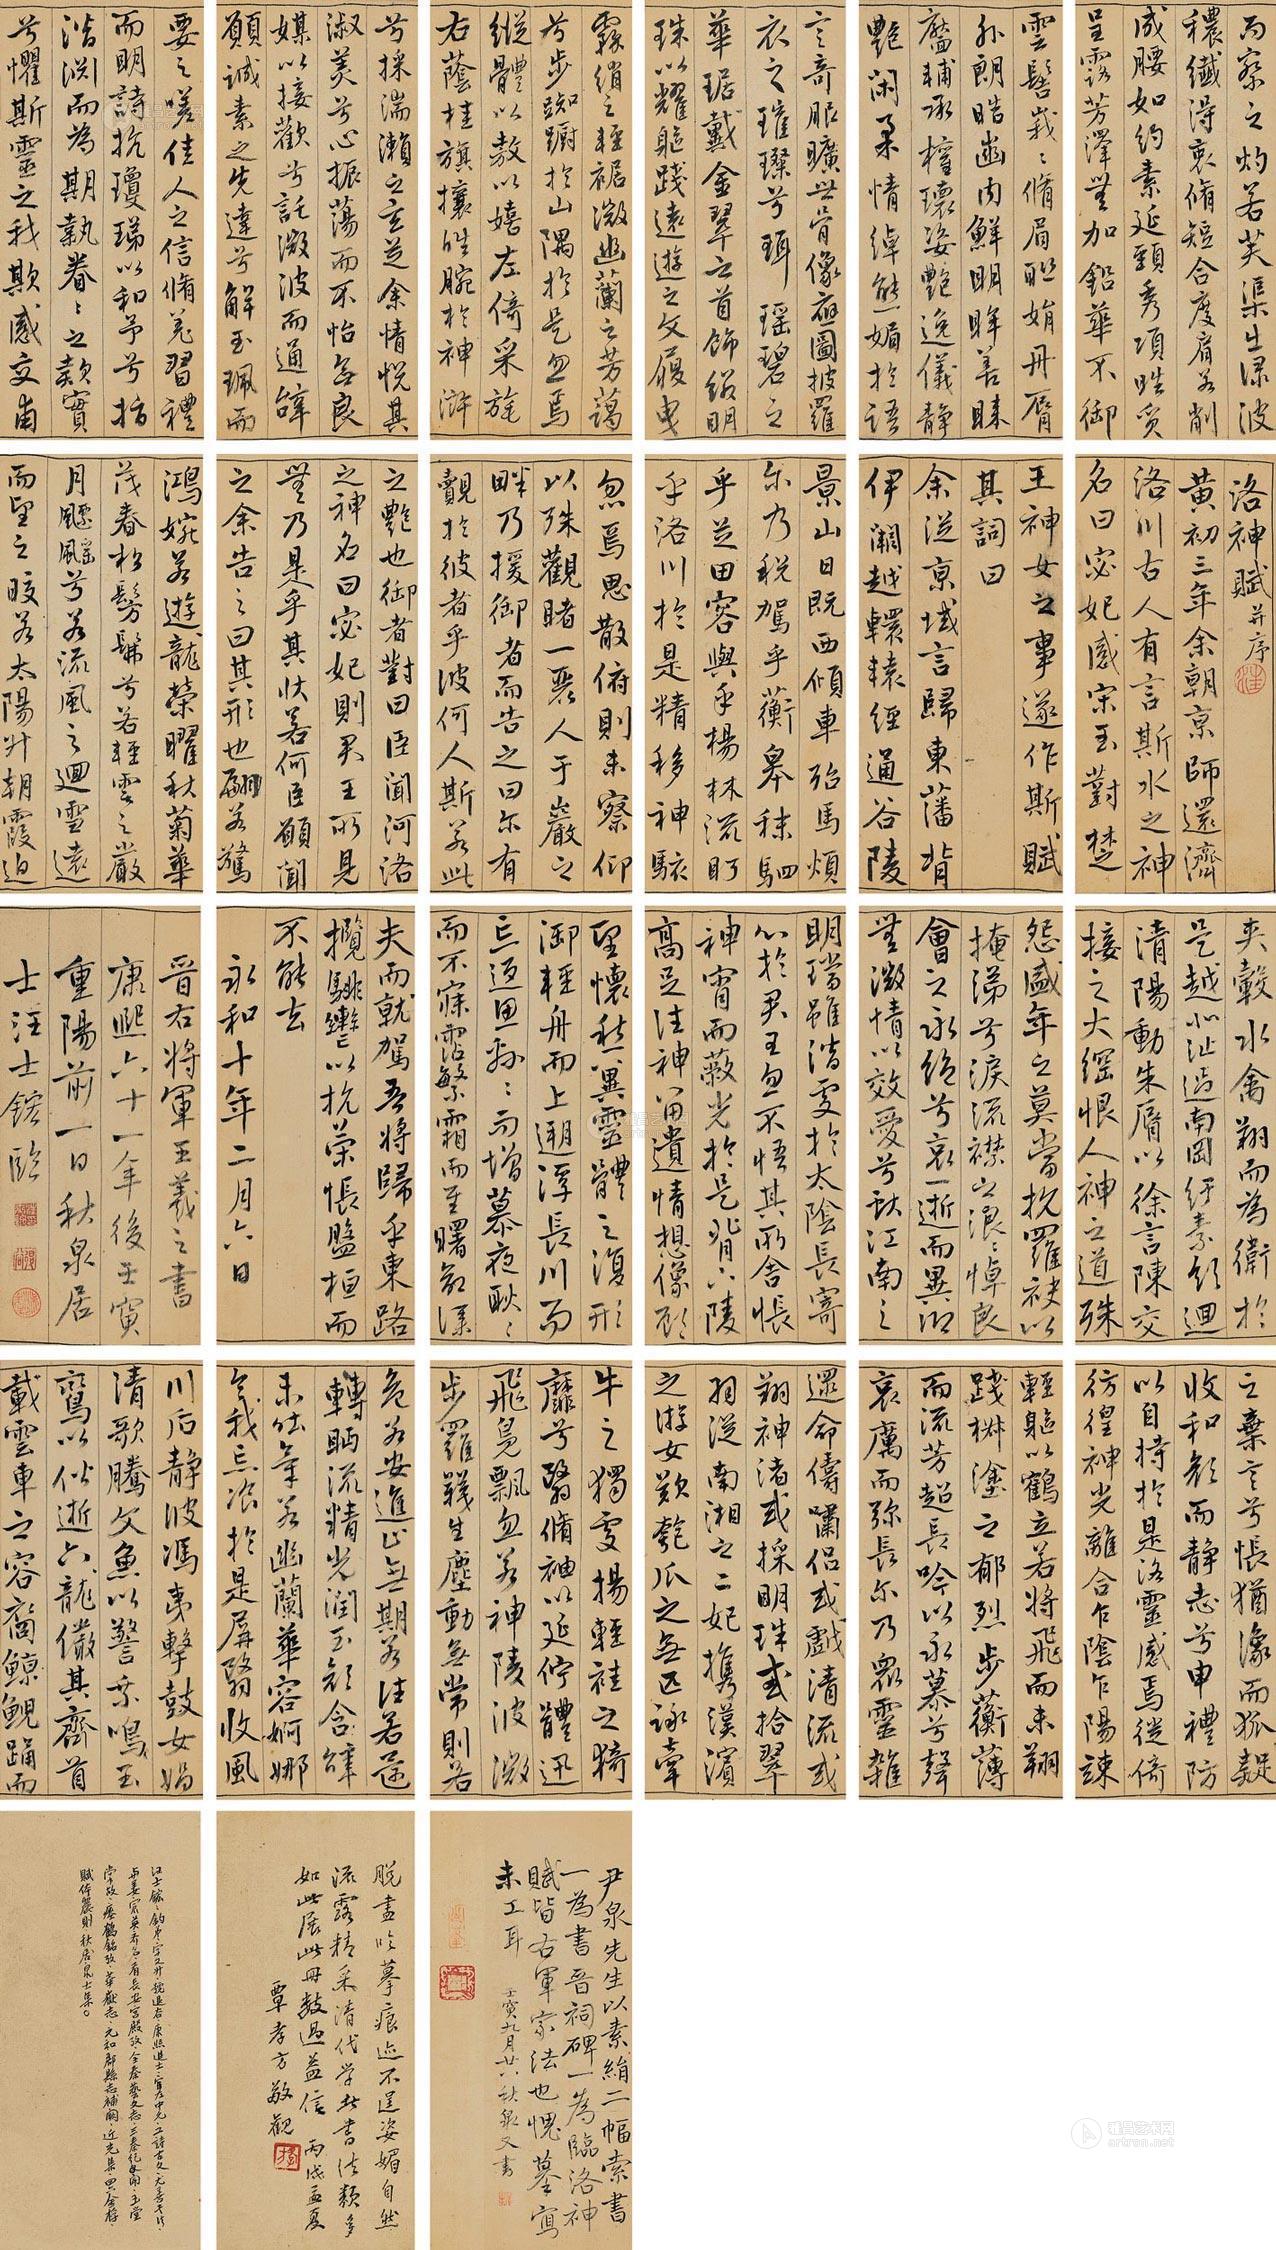 而察之灼若芙渠出渌波
穠纖得衷脩短合度肩若削
成腰如約素延頸秀項皓質
呈露芳澤無加鉛華不御
雲髻峩〻脩眉聯娟丹脣
外朗皓齒内鮮明眸善睞
靨輔承權瓌姿艷逸儀静
艷閑柔情綽態媚於語
言奇服曠世骨像應圖披羅
衣之璀璨兮珥瑶碧之
華琚戴金翠之首飾綴明
珠以耀軀踐遠遊之文履曳
霧綃之輕裾微幽蘭之芳藹
兮步踟蹰於山隅於是忽焉
縱體以敖以嬉左倚采旄
右蔭桂旗攘皓腕於神滸
兮採湍瀨之玄芝余情悦其
淑美兮心振蕩而不怡無良
媒以接歡兮託微波而通辭
願誠素之先達兮解玉珮而
要之嗟佳人之信脩羌習禮
而明詩抗瓊珶以和予兮指
潛淵而為期執眷〻之款實
兮懼斯靈之我欺感交甫
洛神賦并序
黃初三年余朝京師還濟
洛川古人有言斯水之神
名曰宓妃感宋玉對楚
王神女之事遂作斯賦
其詞曰
余從京域言歸東藩背
伊闕越轘轅經通谷陵
景山日既西傾車殆馬煩
尔乃税駕乎蘅臯秣駟
乎芝田容與乎楊林流眄
乎洛川於是精移神駭
忽焉思散俯則未察仰
以殊觀睹一麗人于巖之
畔乃援御者而告之曰尔有
覿於彼者乎彼何人斯若此
之艷也御者對曰臣聞河洛
之神名曰宓妃則君王所見
無乃是乎其狀若何臣願聞
之余告之曰其形也翩若驚
鴻婉若遊龍榮曜秋菊華
茂春松髣髴兮若輕雲之蔽
月飄颻兮若流風之迴雪遠
而望之皎若太陽升朝霞迫
夹轂水禽翔而為衛於
是越北沚過南岡紆素領迴
清陽動朱脣以徐言陳交
接之大綱恨人神之道殊
怨盛年之莫當抗羅袂以
掩涕兮淚流襟之浪〻悼良
會之永絶兮哀一逝而異鄉
無微情以效愛兮獻江南之
明璫雖潛處於太陰長寄
心於君王忽不悟其所舍悵
神宵而蔽光於是背下陵
高足往神留遺情想像顧
望懷愁兾靈體之復形
御輕舟而上遡浮長川而
忘返思緜〻而增慕夜耿〻
而不寐霑繁霜而至曙命僕
夫而就駕吾將歸乎東路
攬騑轡以抗策悵盤桓而
不能去
永和十年二月六日
晉右將軍王羲之書
康熙六十一年後壬寅
重陽前一日秋泉居
士汪士鋐臨
之棄言兮悵猶豫而狐疑
收和顔而静志兮申禮防
以自持於是洛靈感焉徙倚
彷徨神光離合乍陰乍陽竦
輕軀以鶴立若將飛而未翔
踐椒塗之郁烈步蘅薄
而流芳超長吟以永慕兮聲
哀厲而弥長尔乃眾靈雜
遝命儔嘯侣或戲清流或
翔神渚或採明珠或拾翠
羽從南湘之二妃携漢濱
之游女歎匏瓜之無匹詠牽
牛之獨處揚輕袿之猗
靡兮翳脩袖以延佇體迅
飛鳧飄忽若神陵波微
步羅韈生塵動無常則若
危若安進止無期若往若還
轉眄流精光潤玉顔含辭
未吐氣若幽蘭華容婀娜
令我忘飡於是屏翳收風
川后静波馮夷擊鼓女媧
清歌騰文魚以警乘鳴玉
鸞以偕逝六龍儼其齊首
載雲車之容裔鯨鯢踊而
尹泉先生以素絹二幅索書
一為書晉祠碑一為臨洛神
賦皆右軍家法也愧摹寫
未工耳
壬寅九月廿六秋泉又書
脱盡臨摹痕迹不逞姿媚自然
流露精采清代學者書法類多
如此展此册數過益信
丙戌孟夏
覃孝方敬觀
賦体麗則秋居泉士集。
雅昌艺术网
artron.net